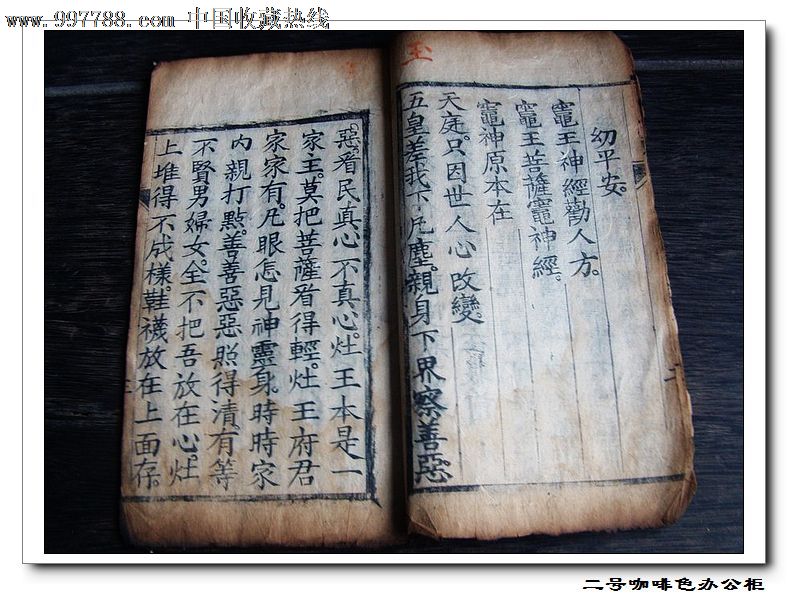 www.997788.com 中国收藏热线
玉
幼平安。
竈王神經勸人方。
竈王菩薩竈神經。
竈神原本在
天庭。只因世人心改變。
五皇差我下凢塵。親身下界察善惡
惡。看民真心不真心。灶王本是一
家主。莫把菩薩看得輕。灶王府君
家家有。凢眼怎見神靈身。時時家
内親打點。善善惡惡照得清。有等
不賢男婦女。全不把吾放在心。灶
上堆得不成樣。鞋襪放在上面存。
二号咖啡色办公柜